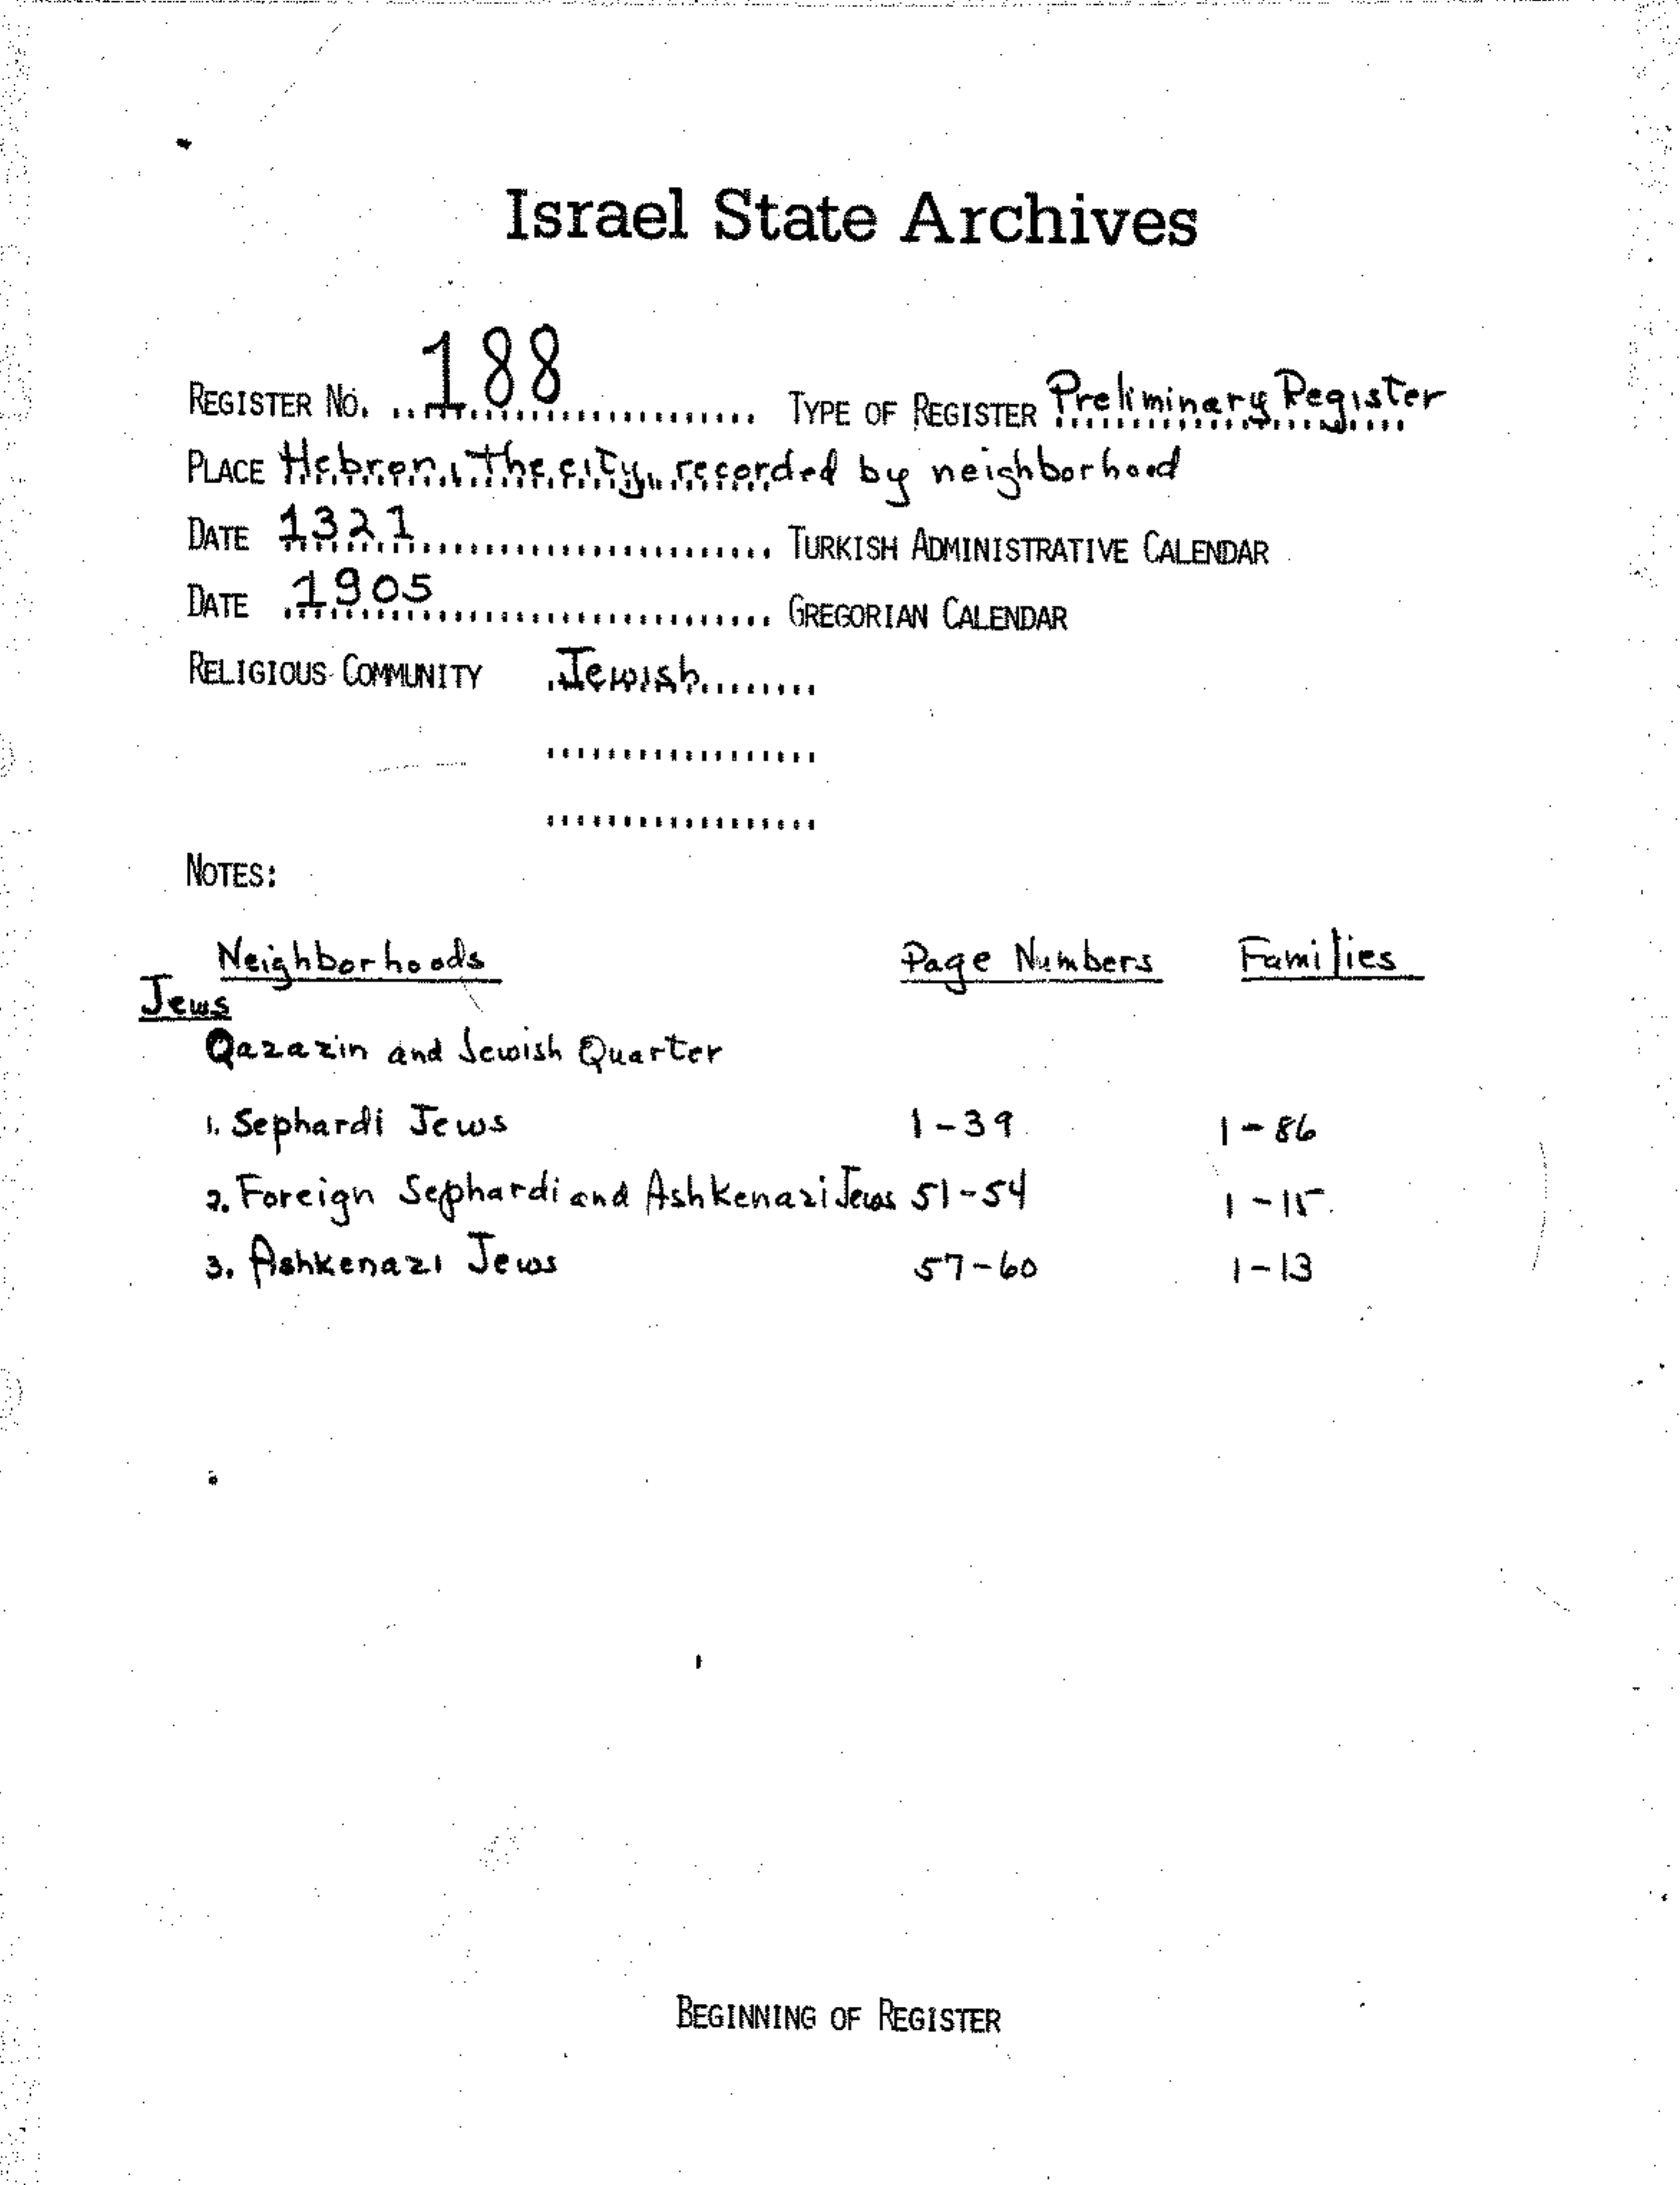 Israel State Archives
REGISTER NO. 188 TYPE OF REGISTER Preliminary Register
PLACE Hebron, the city, recorded by neighborhood
DATE 1321 TURKISH ADMINISTRATIVE CALENDAR
DATE 1905 GREGORIAN CALENDAR
RELIGIOUS COMMUNITY Jewish
NOTES:
Neighborhoods Page Numbers Families
Jews
Qazazin and Jewish Quarter
1. Sephardi Jews 1-39 1-86
2. Foreign Sephardi and Ashkenazi Jews 51-54 1-15
3. Ashkenazi Jews 57-60 1-13
BEGINNING OF REGISTER